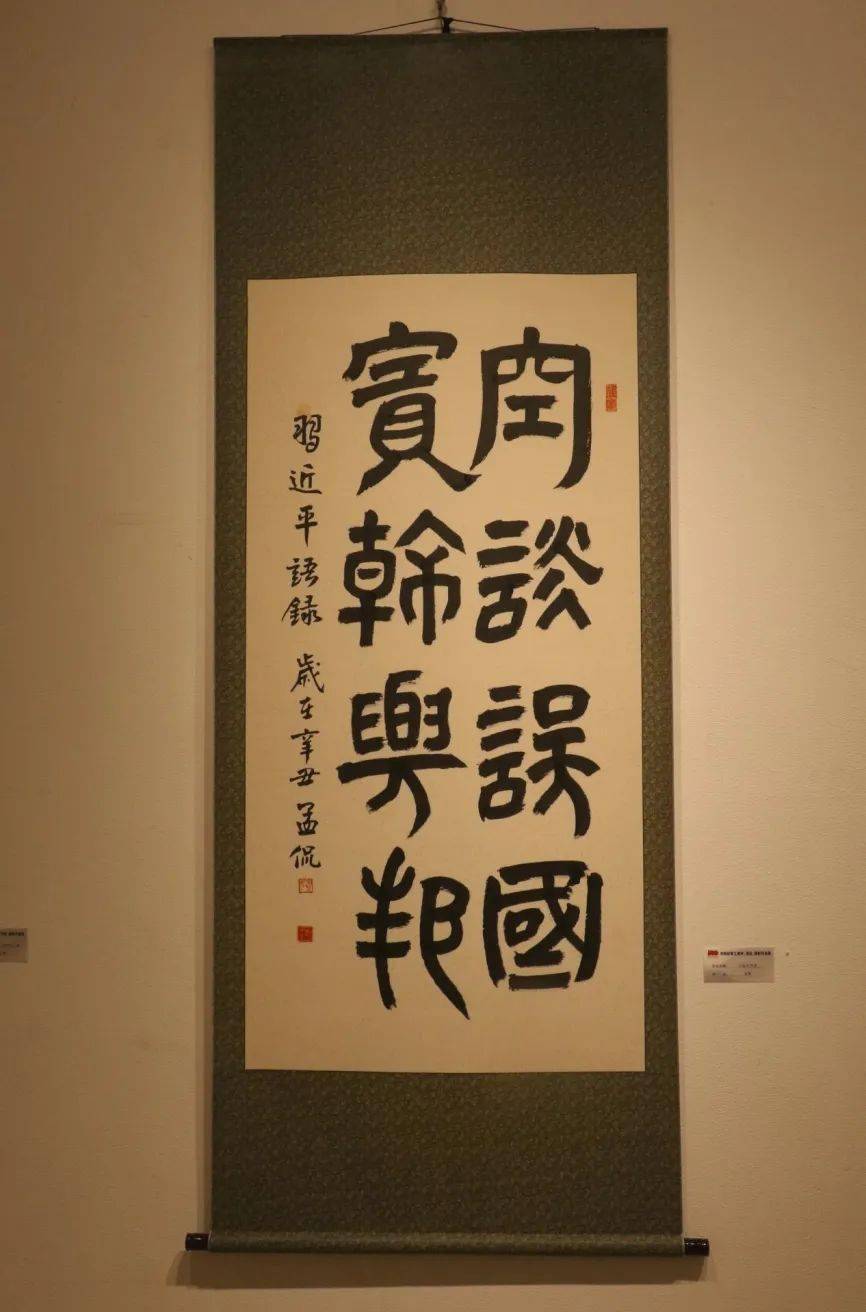 空談誤國
實幹興邦
習近平語録 歲在辛丑 孟侃